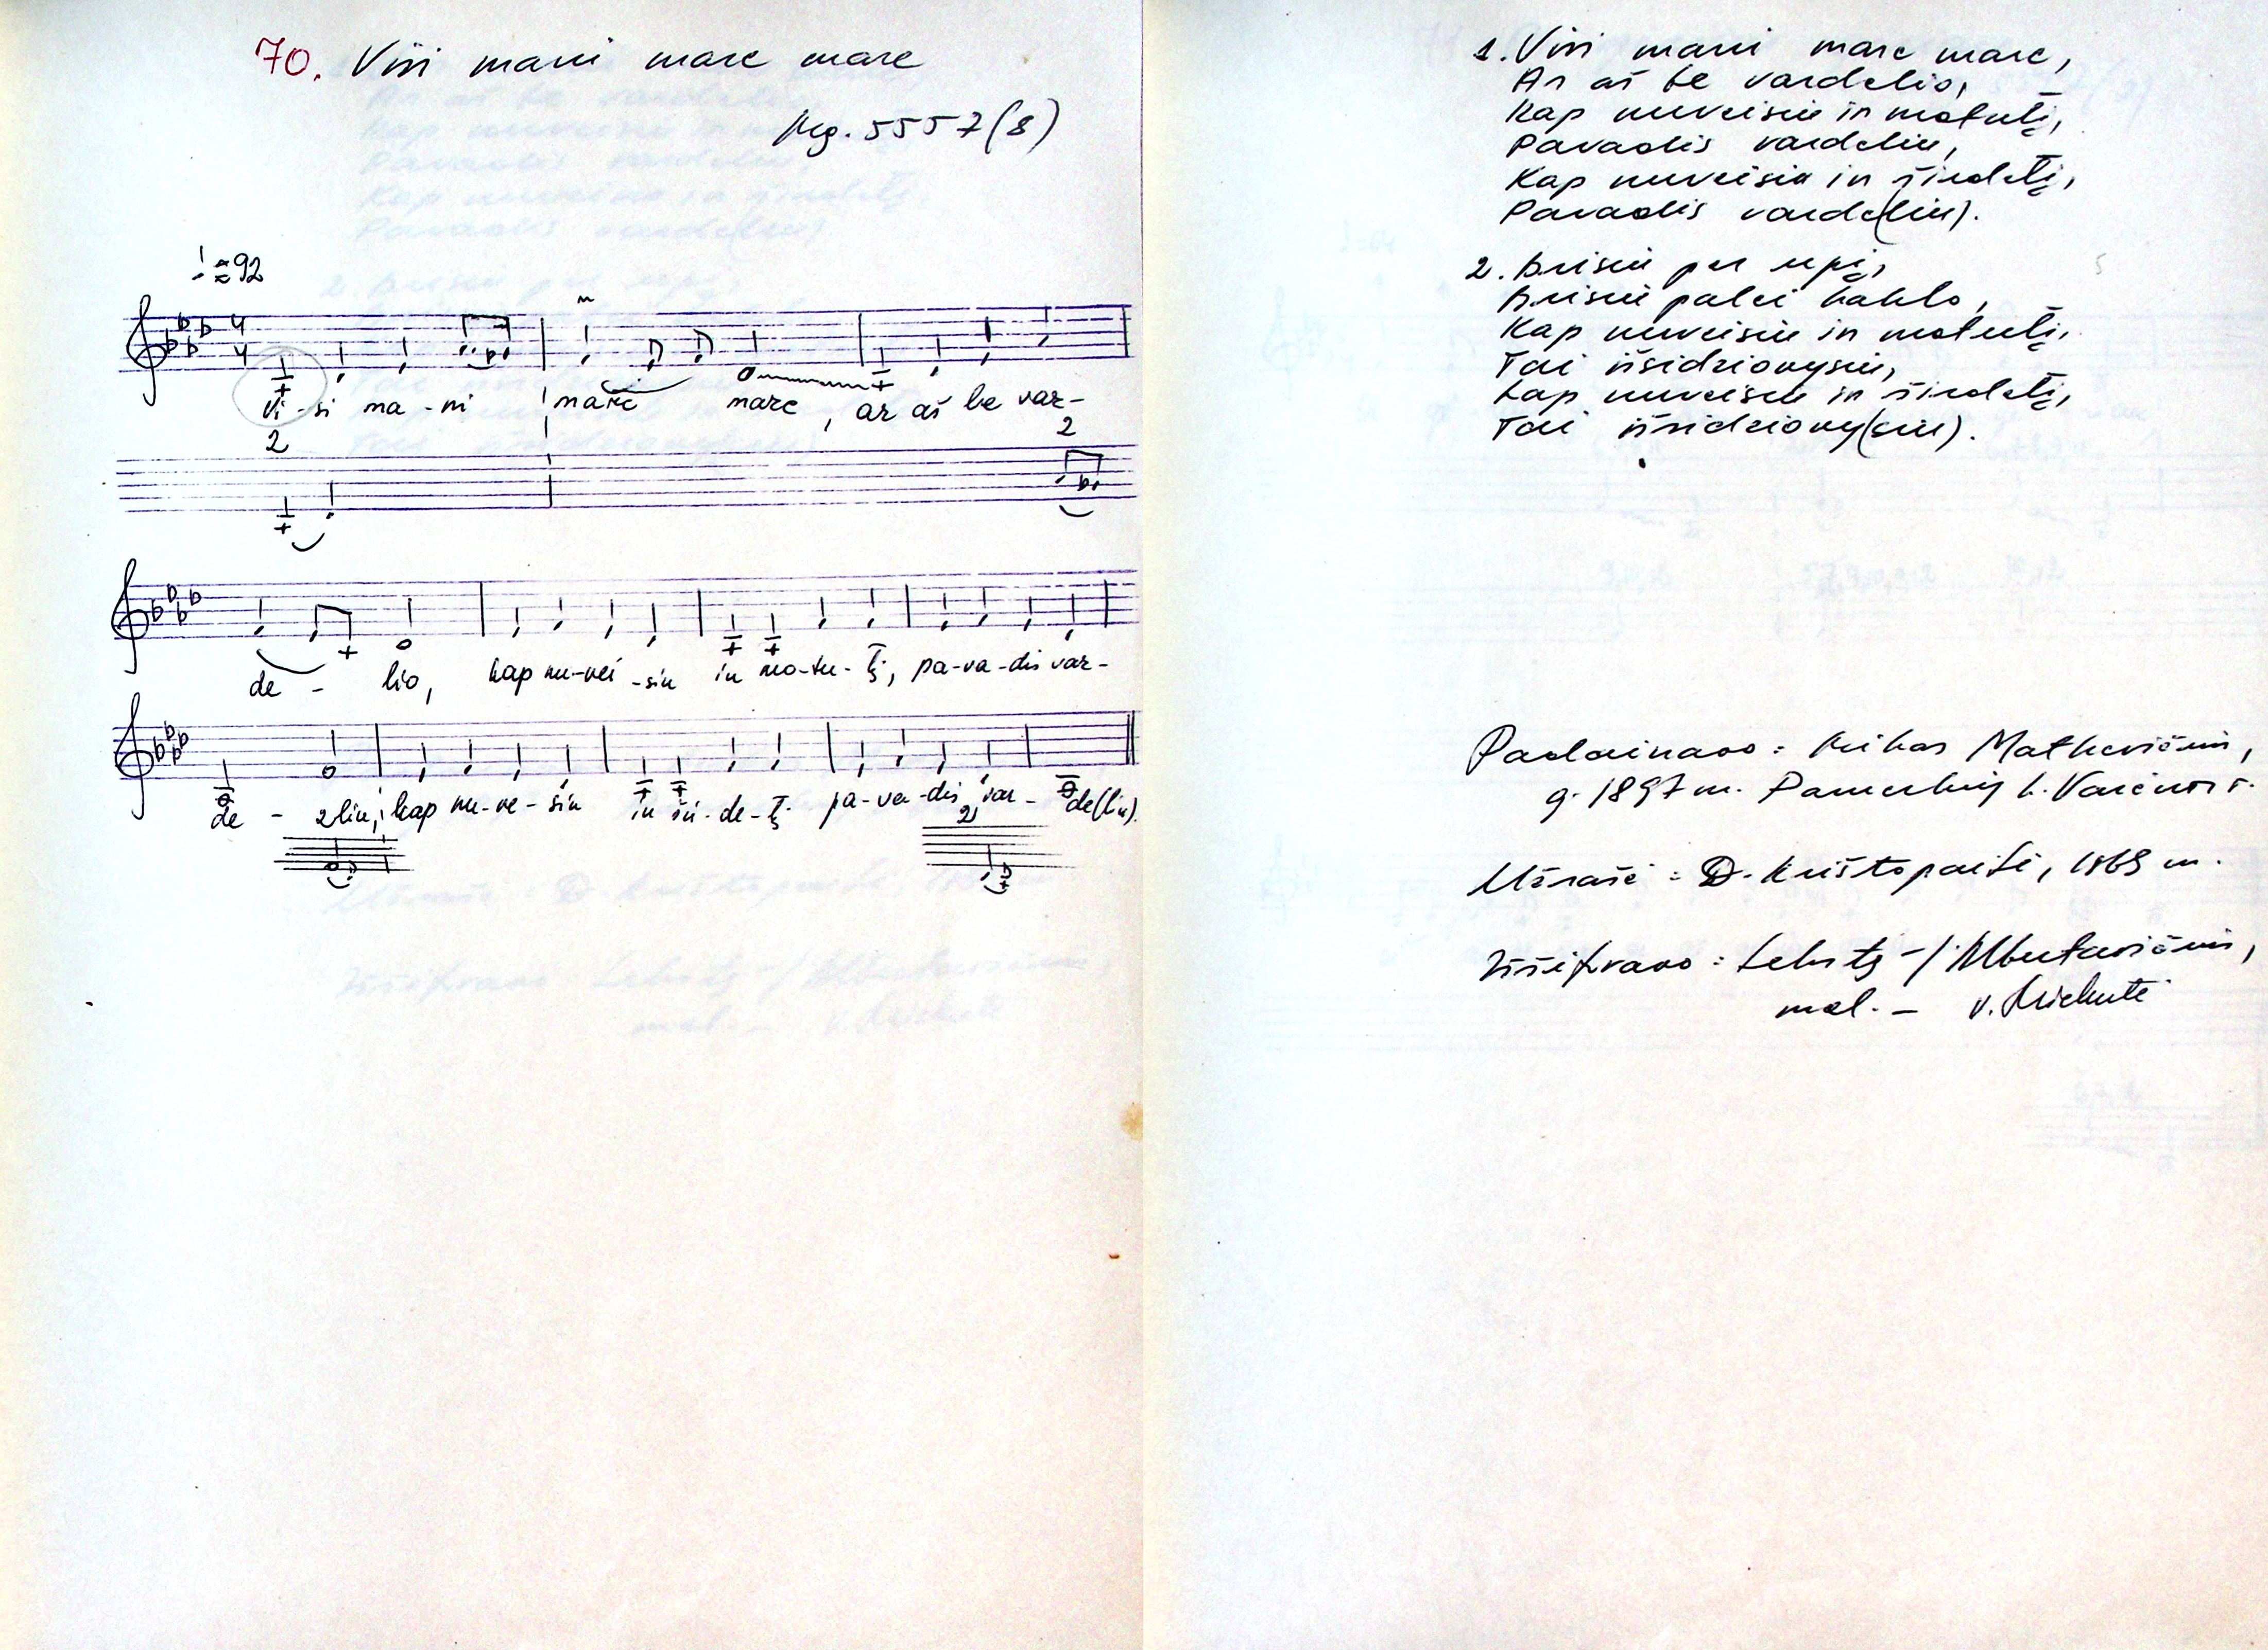 70. Visi mani mare mare
Mg. 5557(8)
≈92
4
4
Vi-si ma-ni mare mare, ar aš be var-
2 2
de - lio, kap nu-vei-siu in mo-tu-tį, pa-va-dis var-
de - liu, kap nu-ve-siu in šir-de-tį pa-va-dis var-de(liu).
2 2
1. Visi mani mare mare,
Ar aš be vardelio,
Kap nuveisiu in motutį,
Pavadis vardeliu,
Kap nuveisiu in širdetį,
Pavadis varde(liu).
2. Brisiu per upį,
Brisiu palei
Kap nuveisiu in motutį,
Tai išsidziovysiu,
Kap nuveisiu in širdetį,
Tai išsidziovy(siu).
Padainavo: Matkevičius,
g. 1897 m. Pamerkių k. Varėnos r.
Užrašė: D. Krištopaitė, 1969 m.
Iššifravo: tekstą -
mel. - V.